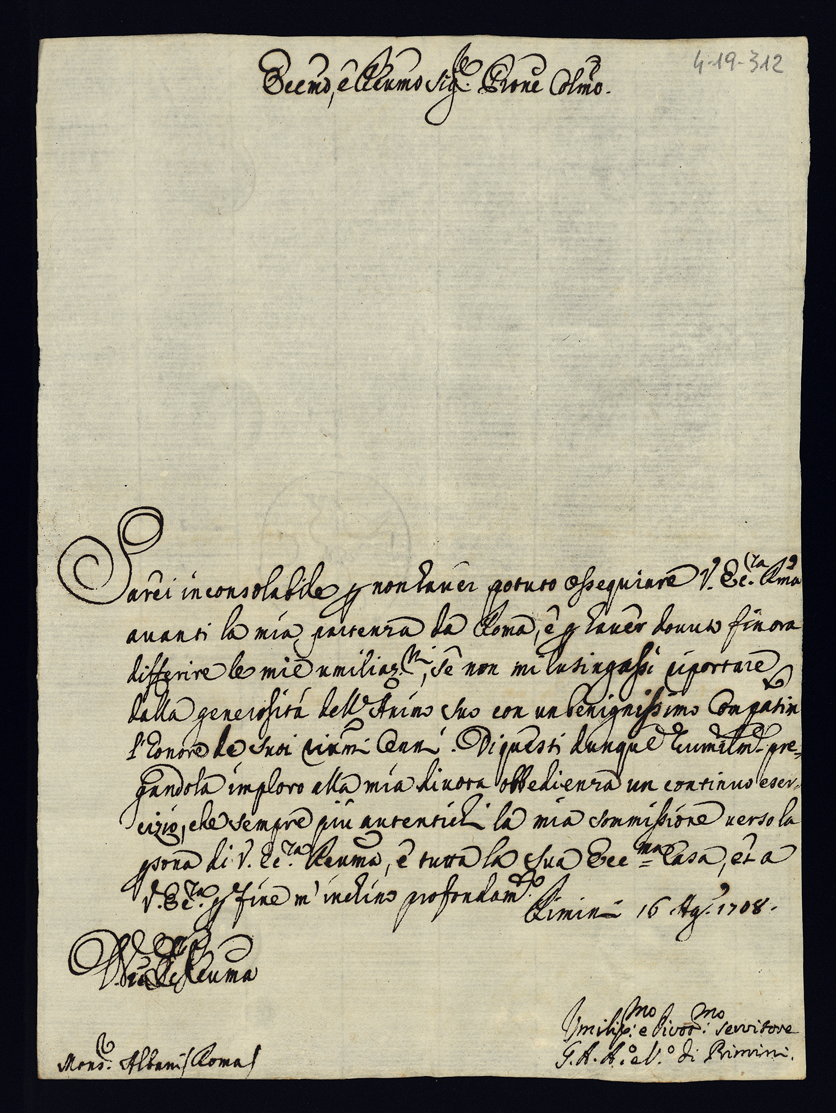 4-19-312
Eccmo, e Reumo Sig.re Prone Colmo.
Sarei inconsolabile p non haver potuto ossequiare V. Ecc.za Rma
avanti la mia partenza da Roma, e p haver dovuto finora
differire le mie umiliaz.ni, se non mi lusingassi riportare
dalla generosità dell'Animo suo con un benignissimo Compatim
l'honore de suoi Cenni. Di questi dunque humilm.e pre=
gandola imploro alla mia divota obbedienza un continuo eser=
cizio, che sempre più autentichi la mia sommissione verso la
psona di V. Ecc.za Reuma, e tutta la sua Ecc=ma Casa, et a
V. Ecc.za p fine m'inchino profondam.te
Rimini 16 Ag.o 1708.
Reuma
Mons.r Albani Roma
Umiliss:mo e divot:mo servitore
G. A. A.o e V.o di Rimini.